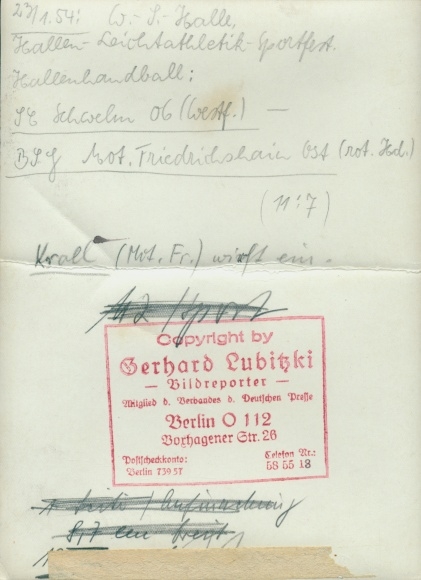 23/1.54: W.-S.-Halle,
Hallen-Leichtathletik-Sportfest.
Hallenhandball:
SC Schwelm 06 (Westf.) —
BSG Mot. Friedrichshain Ost (rot. Hd.)
(11:7)
Krall (Mot. Fr.) wirft ein.
42 / Sport
Copyright by
Gerhard Lubitzki
— Bildreporter —
Mitglied d. Verbandes d. Deutschen Presse
Berlin O 112
Boxhagener Str. 26
Postscheckkonto: Telefon Nr.:
Berlin 739 57 58 55 18
/ Aufmachung
8,7 cm breit